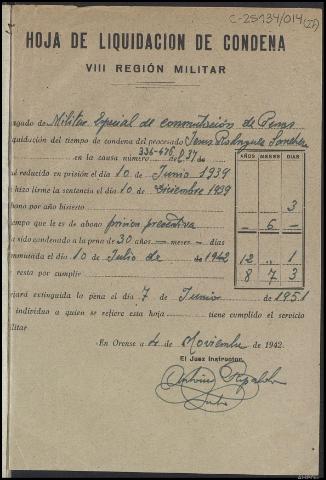 C-25134/014(II)
HOJA DE LIQUIDACION DE CONDENA
VIII REGIÓN MILITAR
zgado de Militar Especial de conmutación de Penas
quidación del tiempo de condena del procesado Jesus Rodriguez Sanchez
336-476 en la causa número de 37 de
ué reducido en prisión el dia 10 de Junio 1939
e hizo firme la sentencia el dia 10 de Diciembre 1939
AÑOS MESES DIAS
bono por año bisiesto 3
empo que le es de abono prision preventiva — 6 —
a sido condenado a la pena de 30 años — meses — dias
onmutada el dia 10 de Julio de 1942 12 „ 1
resta por cumplir 8 7 3
ejará extinguida la pena el dia 7 de Junio de 1951
individuo a quien se refiere esta hoja tiene cumplido el servicio
ilitar.
En Orense a 4 de Noviembre de 1942.
El Juez Instructor,